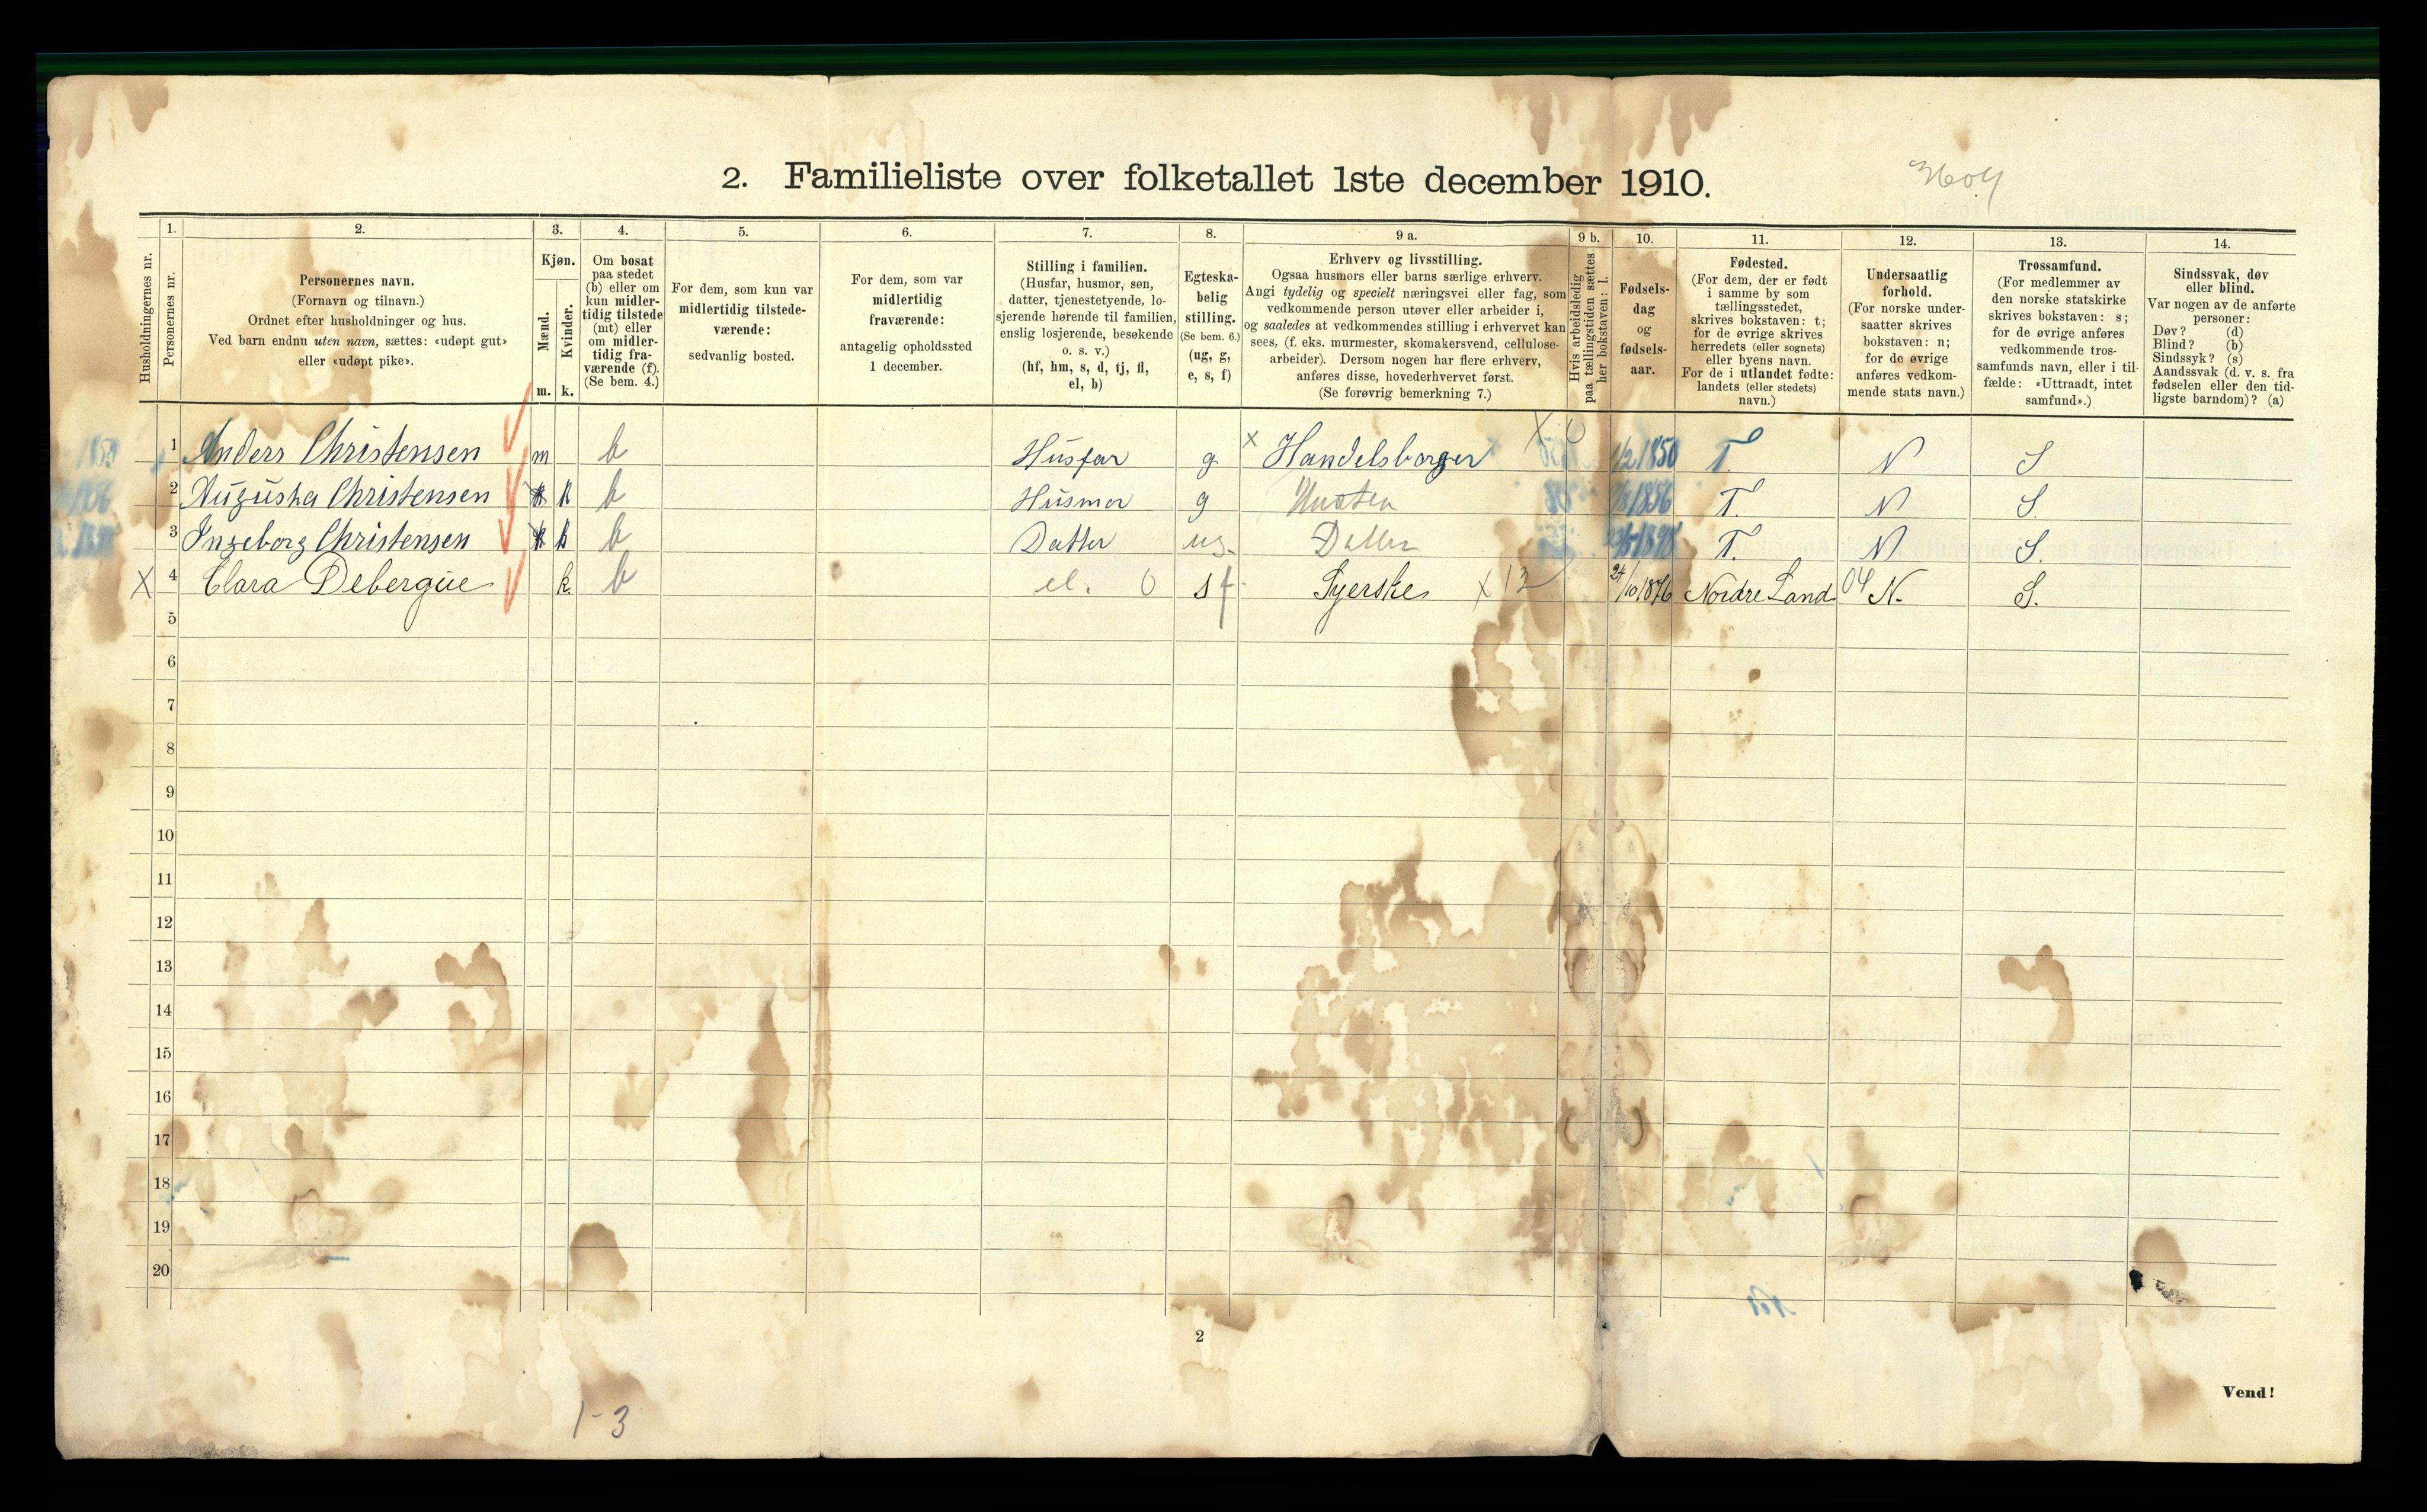 2. Familieliste over folketallet 1ste december 1910.
1. 2. 3. 4. 5. 6. 7. 8. 9 a. 9 b. 10. 11. 12. 13. 14.
Husholdningernes nr.
Personernes nr.
Personernes navn.
(Fornavn og tilnavn.)
Ordnet efter husholdninger og hus.
Ved barn endnu uten navn, sættes: «udøpt gut»
eller «udøpt pike».
Kjøn.
Mænd.
m.
Kvinder.
k.
Om bosat
paa stedet
(b) eller om
kun midler-
tidig tilstede
(mt) eller
om midler-
tidig fra-
værende (f).
(Se bem. 4.)
For dem, som kun var
midlertidig tilstede-
værende:
sedvanlig bosted.
For dem, som var
midlertidig
fraværende:
antagelig opholdssted
1 december.
Stilling i familien.
(Husfar, husmor, søn,
datter, tjenestetyende, lo-
sjerende hørende til familien,
enslig losjerende, besøkende
o. s. v.)
(hf, hm, s, d, tj, fl,
el, b)
Egteska-
belig
stilling.
(Se bem. 6.)
(ug, g,
e, s, f)
Erhverv og livsstilling.
Ogsaa husmors eller barns særlige erhverv.
Angi tydelig og specielt næringsvei eller fag, som
vedkommende person utøver eller arbeider i,
og saaledes at vedkommendes stilling i erhvervet kan
sees, (f. eks. murmester, skomakersvend, cellulose-
arbeider). Dersom nogen har flere erhverv,
anføres disse, hovederhvervet først.
(Se forøvrig bemerkning 7.)
Hvis arbeidsledig
paa tællingstiden sættes
her bokstaven: l.
Fødsels-
dag
og
fødsels-
aar.
Fødested.
(For dem, der er født
i samme by som
tællingsstedet,
skrives bokstaven: t;
for de øvrige skrives
herredets (eller sognets)
eller byens navn.
For de i utlandet fødte:
landets (eller stedets)
navn.)
Undersaatlig
forhold.
(For norske under-
saatter skrives
bokstaven: n;
for de øvrige
anføres vedkom-
mende stats navn.)
Trossamfund.
(For medlemmer av
den norske statskirke
skrives bokstaven: s;
for de øvrige anføres
vedkommende tros-
samfunds navn, eller i til-
fælde: «Uttraadt, intet
samfund».)
Sindssvak, døv
eller blind.
Var nogen av de anførte
personer:
Døv? (d)
Blind? (b)
Sindssyk? (s)
Aandssvak (d. v. s. fra
fødselen eller den tid-
ligste barndom)? (a)
1 Anders Christensen m b Husfar g x Handelsborger x 0 1/2 1850 T. N S
2 Augusta Christensen k b Husmor g 1856 T. N S.
3 Ingeborg Christensen k b Datter ug. Datter 1898 T. N S.
X 4 Clara Debergue k. b el. 0 s f Syerske x 13 24/10 1876 Nordre Land 04 N. S.
5
6
7
8
9
10
11
12
13
14
15
16
17
18
19
20
2
Vend!
1-3